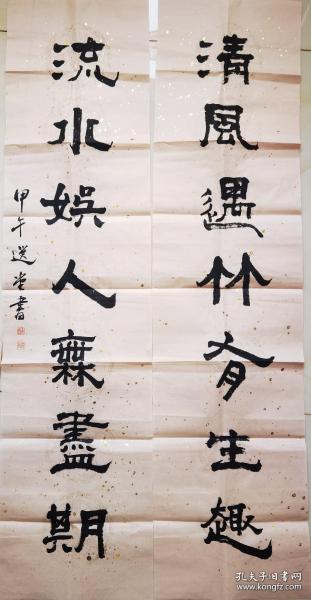 清風遇竹有生趣
流水娛人無盡期
甲午選堂書
孔夫子旧书网
www.kongfz.com